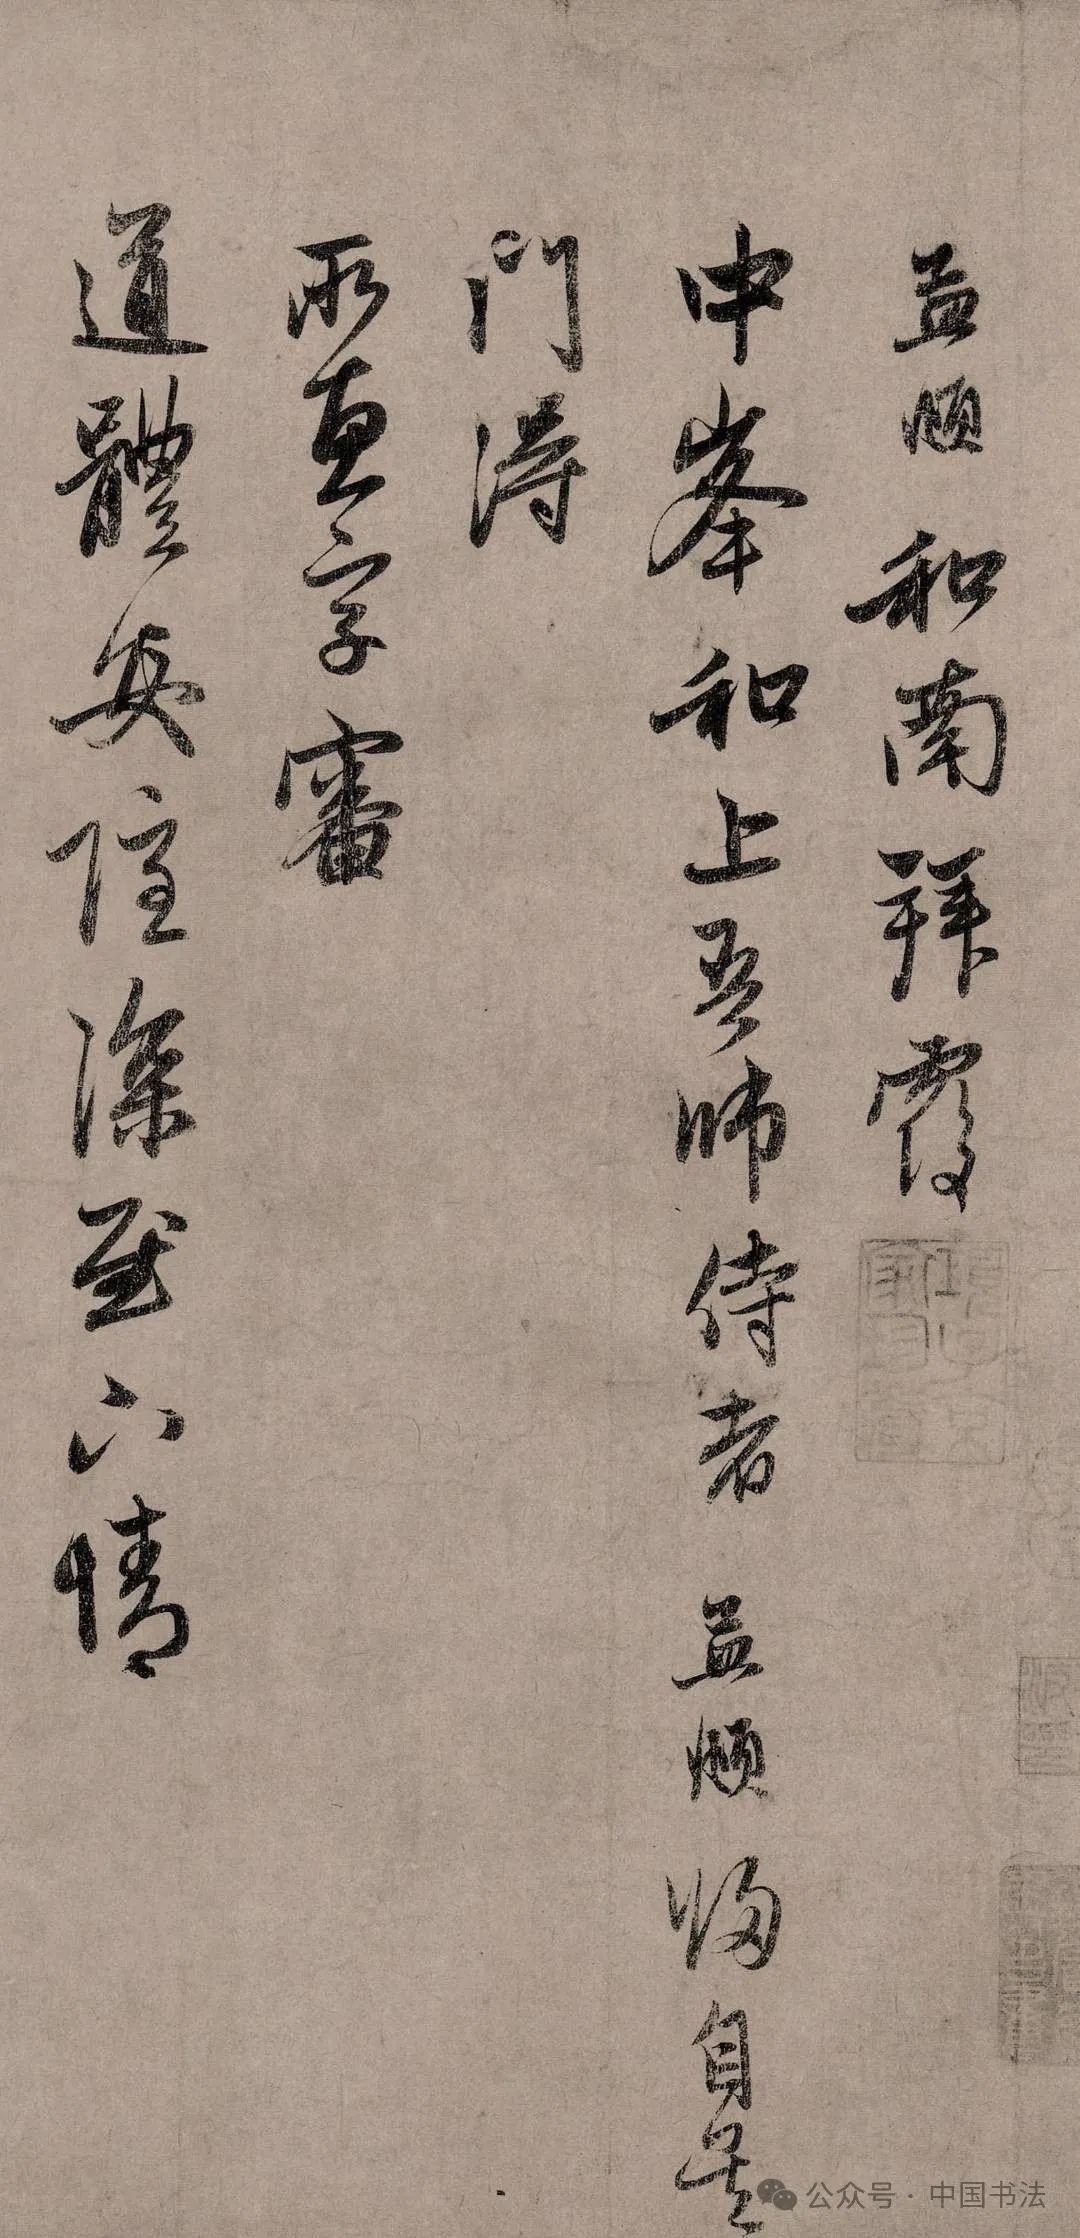 孟頫和南拜覆
中峯和上吾師侍者孟頫歸自吴
門得
所惠字審
道體安隱深慰下情
公众号·中国书法